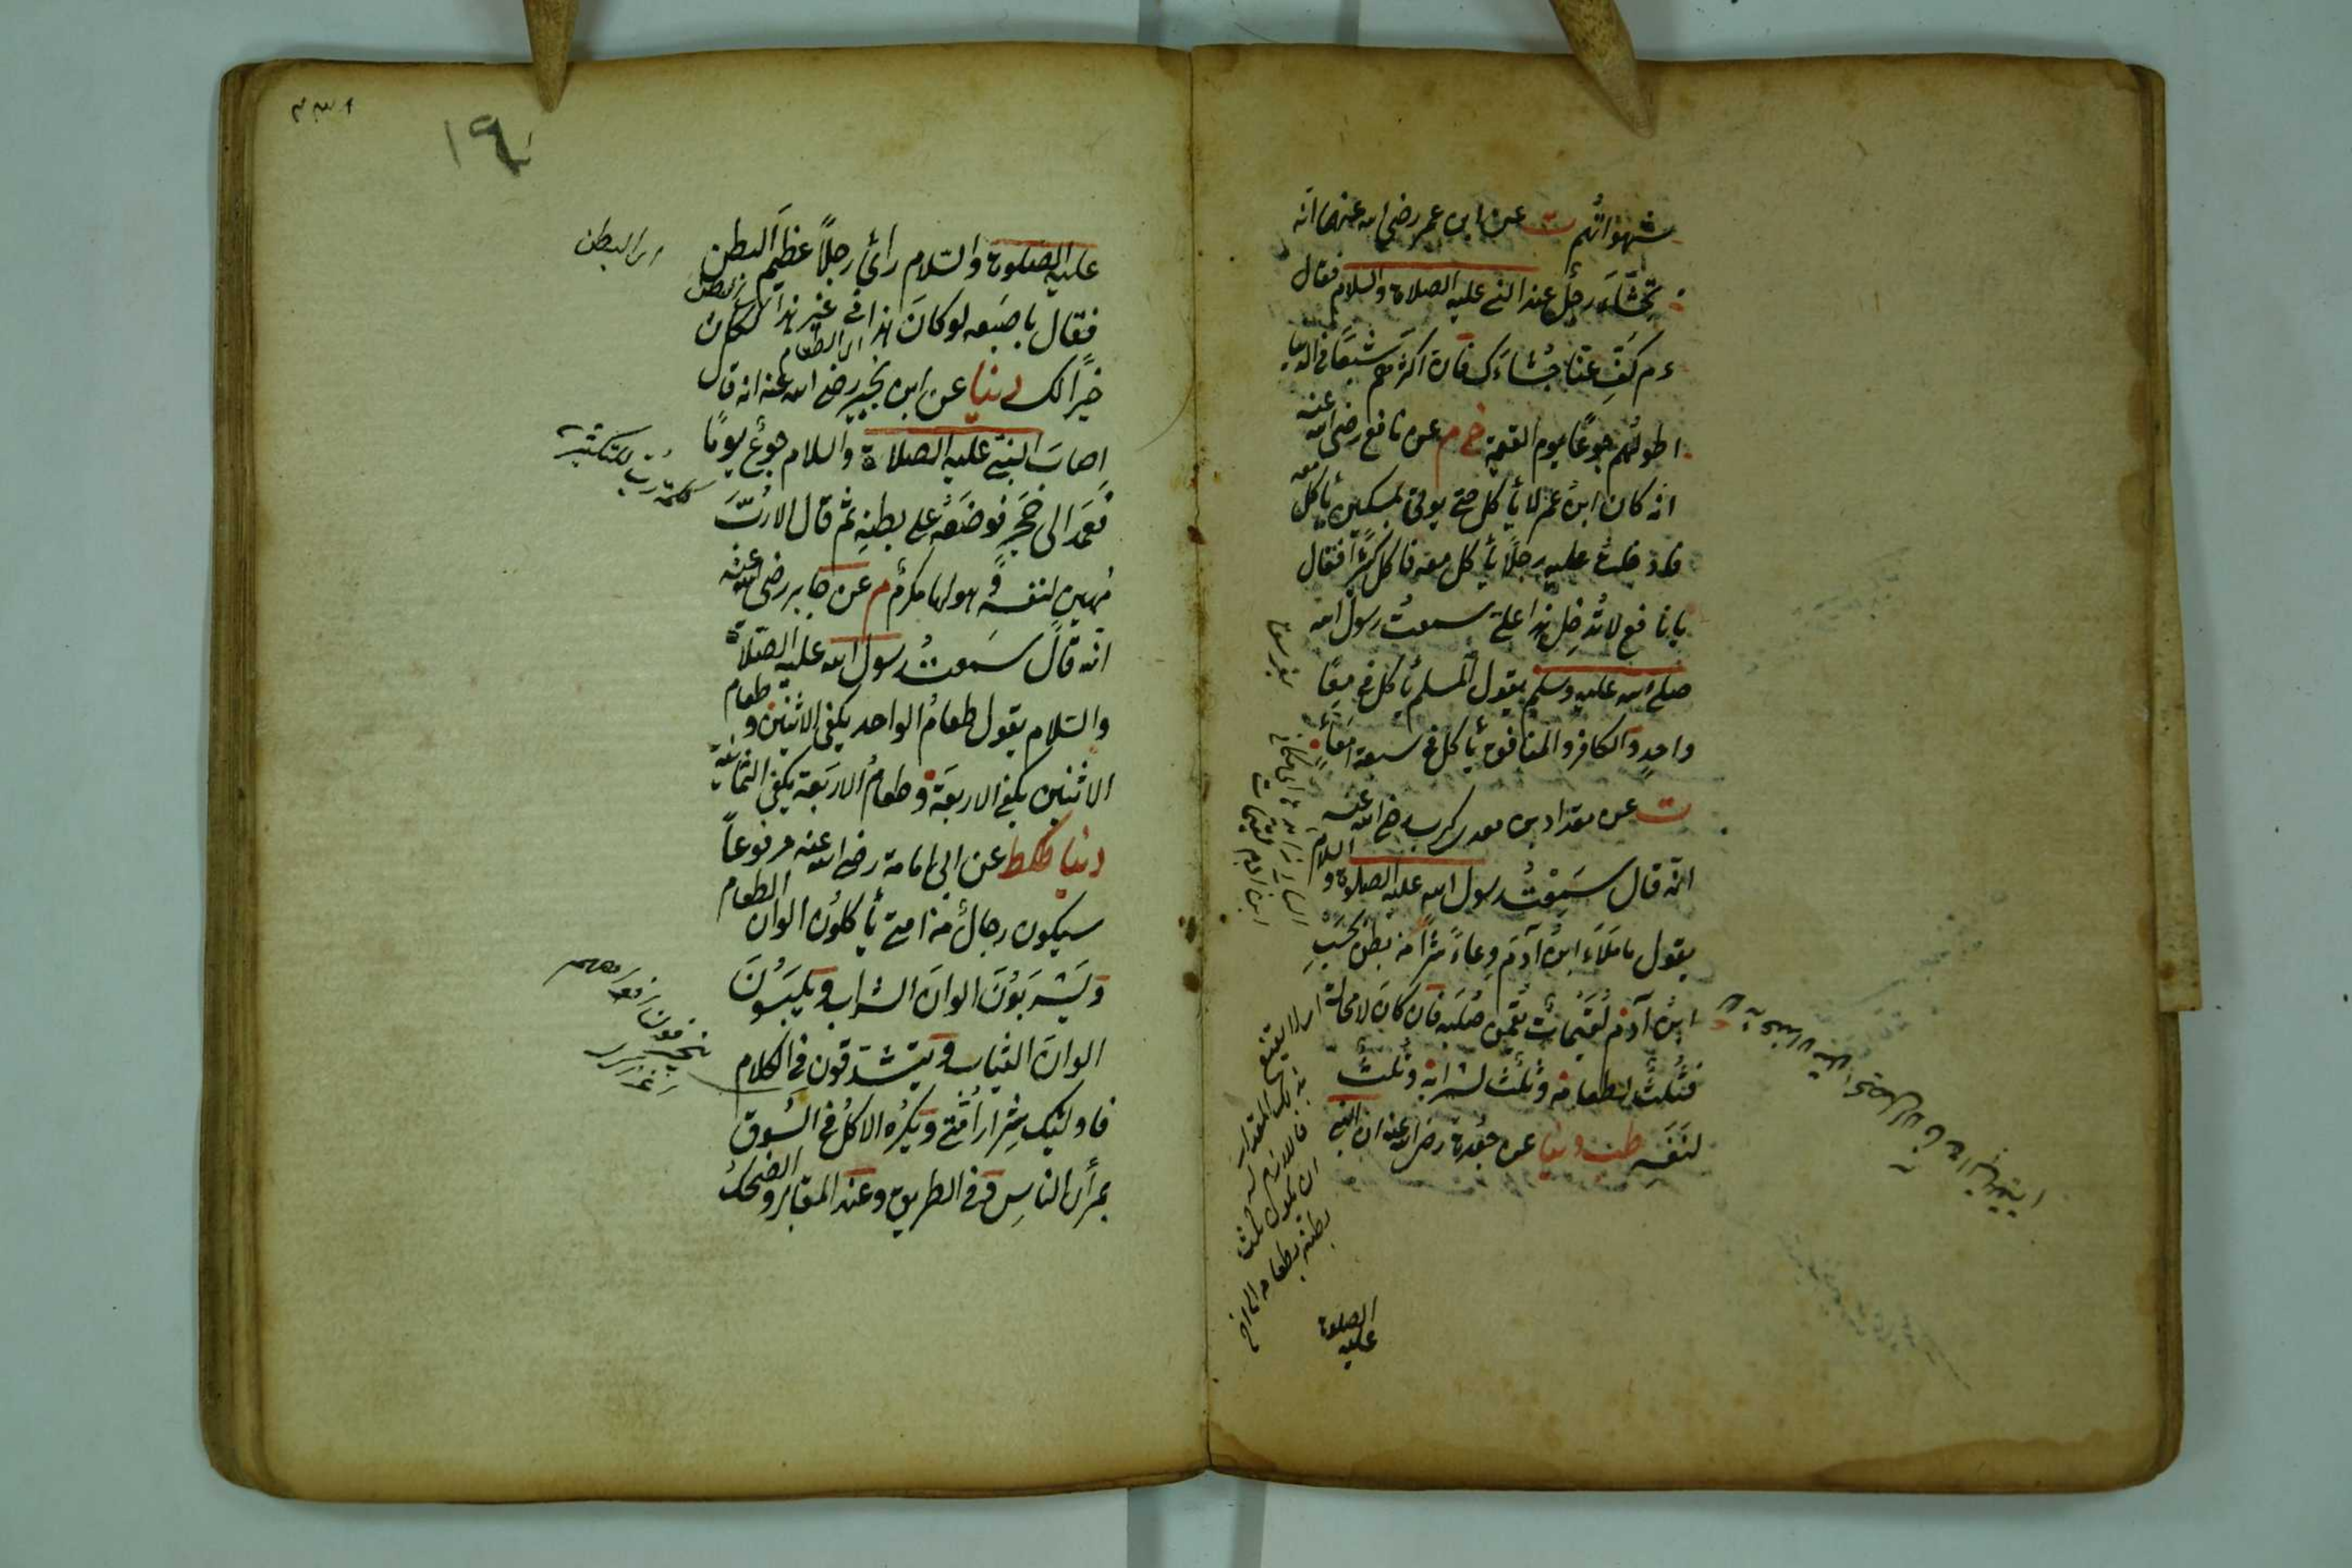 شهواتهم ت عن ابن عمر رضى الله عنهما انه
تجشاء رجل عند النبى عليه الصلاة والسلام فقال
ءم كف عنا جشاءك فان اكثرهم شبعا فى الدنيا
اطولهم جوعا يوم القيمة خ م عن نافع رضى الله عنه
انه كان ابن عمر لا يأكل حتى يؤتى بمسكين يأكل معه
فادخلت عليه رجلا يأكل معه فاكل كثيرا فقال
يا نافع لا تدخل هذا على سمعت رسول الله
صلى الله عليه وسلم يقول المسلم يأكل فى معا
واحد والكافر والمنافق يأكل فى سبعة امعاء
ت عن مقداد بن معدى كرب رضى الله عنه
انه قال سمعت رسول الله عليه الصلاة والسلام
يقول ما ملاء ابن آدم وعاء شرا من بطن بحسب
ابن آدم لقيمات يقمن صلبه فان كان لا محالة
فثلث لطعامه وثلث لشرابه وثلث
لنفسه طب دنيا عن جعدة رضى الله عنه ان النبى
اى لا يقنع
بذلك المقدار
فاللازم له
ان يكون ثلث
بطنه بطعامه الى اخره
الصلوة
عليه
١٩
اى البطن
عليه الصلوة والسلام رأى رجلا عظيم البطن
فقال باصبعه لو كان هذا فى غير هذا لكان
اى البطن
اى الطعام
خيرا لك دنيا عن ابن بجير رضى الله عنه انه قال
اصاب النبى عليه الصلاة والسلام جوع يوما
كلمة رب للتكثير
فعمد الى حجر فوضعه على بطنه ثم قال الا رب
مهين لنفسه وهو لها مكرم م عن جابر رضى الله عنه
انه قال سمعت رسول الله عليه الصلاة
والسلام يقول طعام الواحد يكفى الاثنين وطعام
الاثنين يكفى الاربعة وطعام الاربعة يكفى الثمانية
دنيا طكط عن ابى امامة رضى الله عنه مرفوعا
سيكون رجال من امتى يأكلون الوان الطعام
ويشربون الوان الشراب ويلبسون
الوان الثياب ويتشدقون فى الكلام
فاولئك شرار امتى ويكره الاكل فى السوق
بمرأى الناس وفى الطريق وعند المقابر والضحك